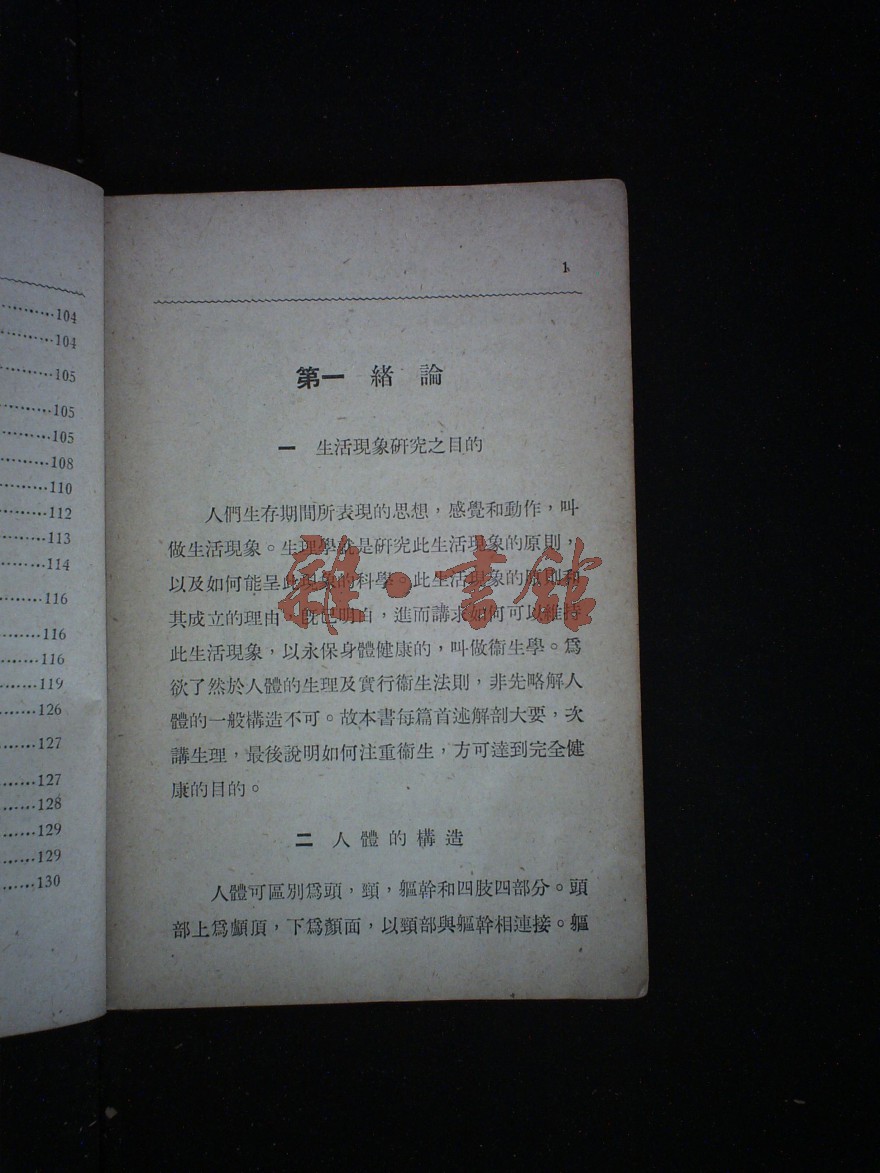 ………104
………104
………105
………105
………105
………108
………110
………112
………113
………114
………116
………116
………116
………119
………126
………127
………127
………128
………129
………129
………130
1
第一 緒 論
一 生活現象硏究之目的
人們生存期間所表現的思想，感覺和動作，叫
做生活現象。生理學就是硏究此生活現象的原則，
以及如何能呈此現象的科學。此生活現象的原則和
其成立的理由，旣已明白，進而講求如何可以維持
此生活現象，以永保身體健康的，叫做衞生學。爲
欲了然於人體的生理及實行衞生法則，非先略解人
體的一般構造不可。故本書每篇首述解剖大要，次
講生理，最後說明如何注重衞生，方可達到完全健
康的目的。
二 人 體 的 構 造
人體可區別爲頭，頸，軀幹和四肢四部分。頭
部上爲顱頂，下爲顏面，以頸部與軀幹相連接。軀
雜·書館